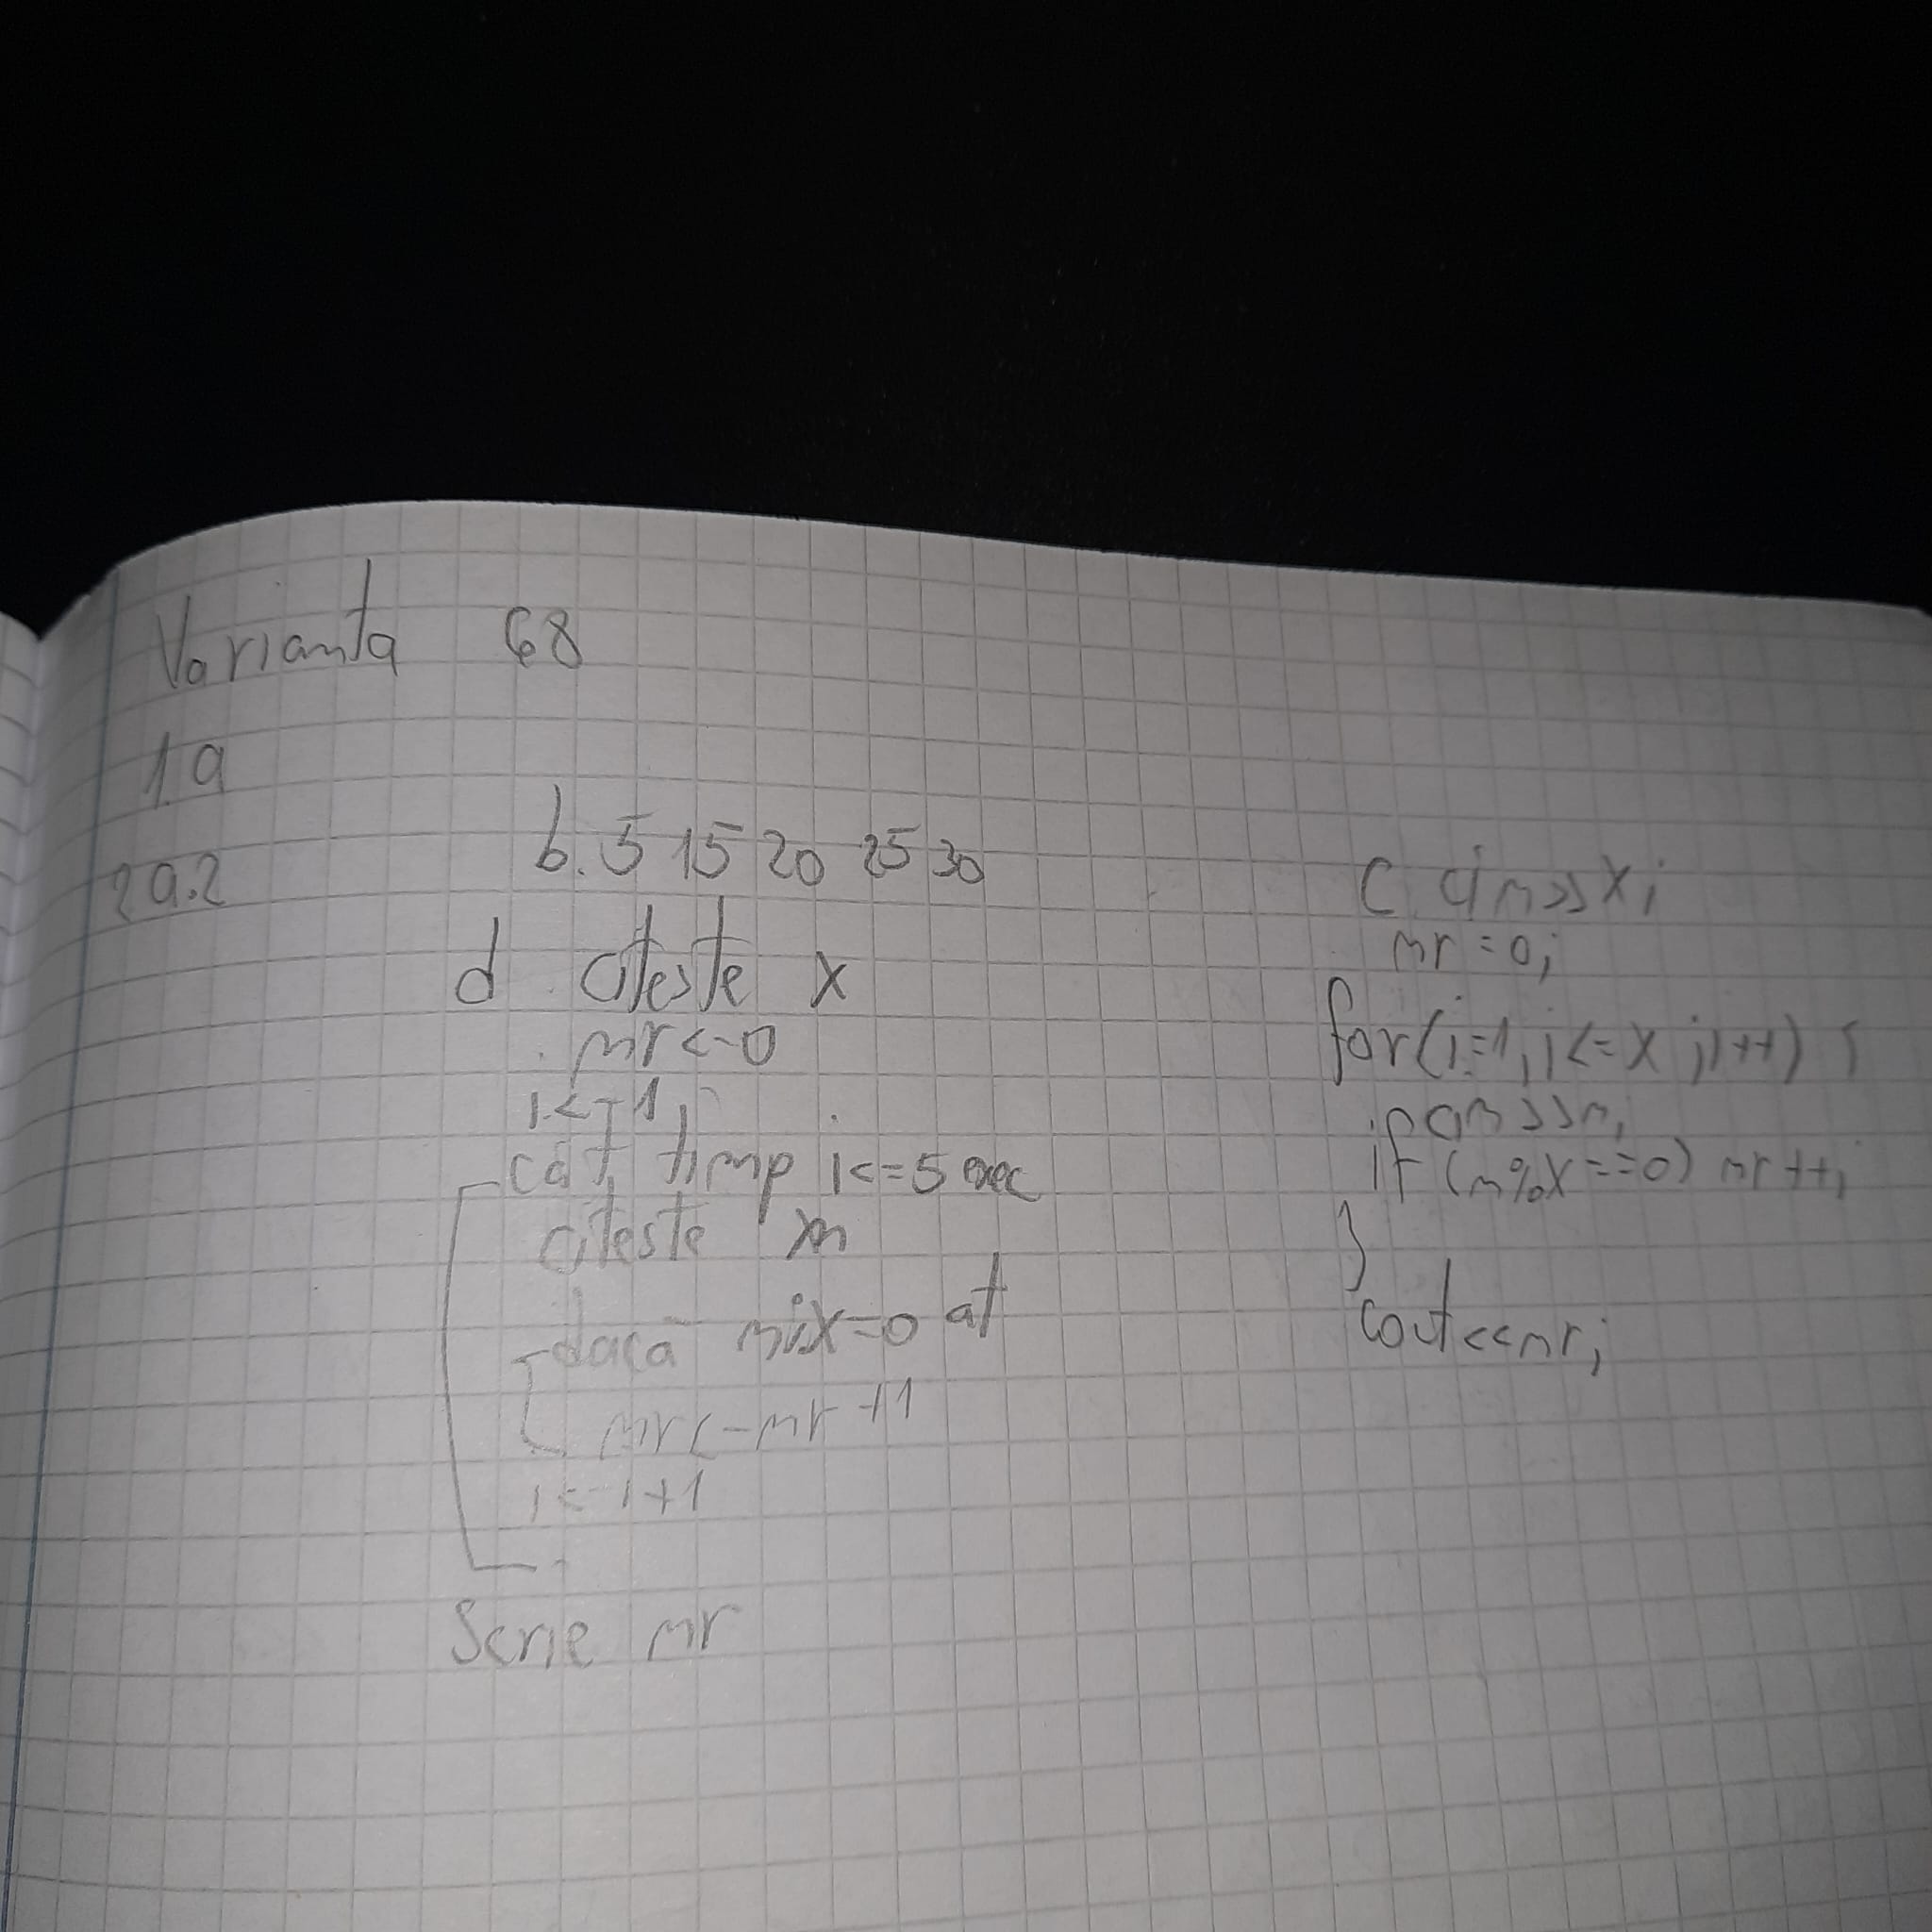 Varianta 68
1.a
2a.2
b. 5 15 20 25 30
d. citeste x
nr<-0
i<-1
cât timp i<=5 exec
citeste n
dacă n%x=0 at
nr<-nr+1
i<-i+1
Scrie nr
C. cin>>x;
nr=0;
for(i=1;i<=x;i++) {
cin>>n;
if (n%x==0) nr++;
}
cout<<nr;